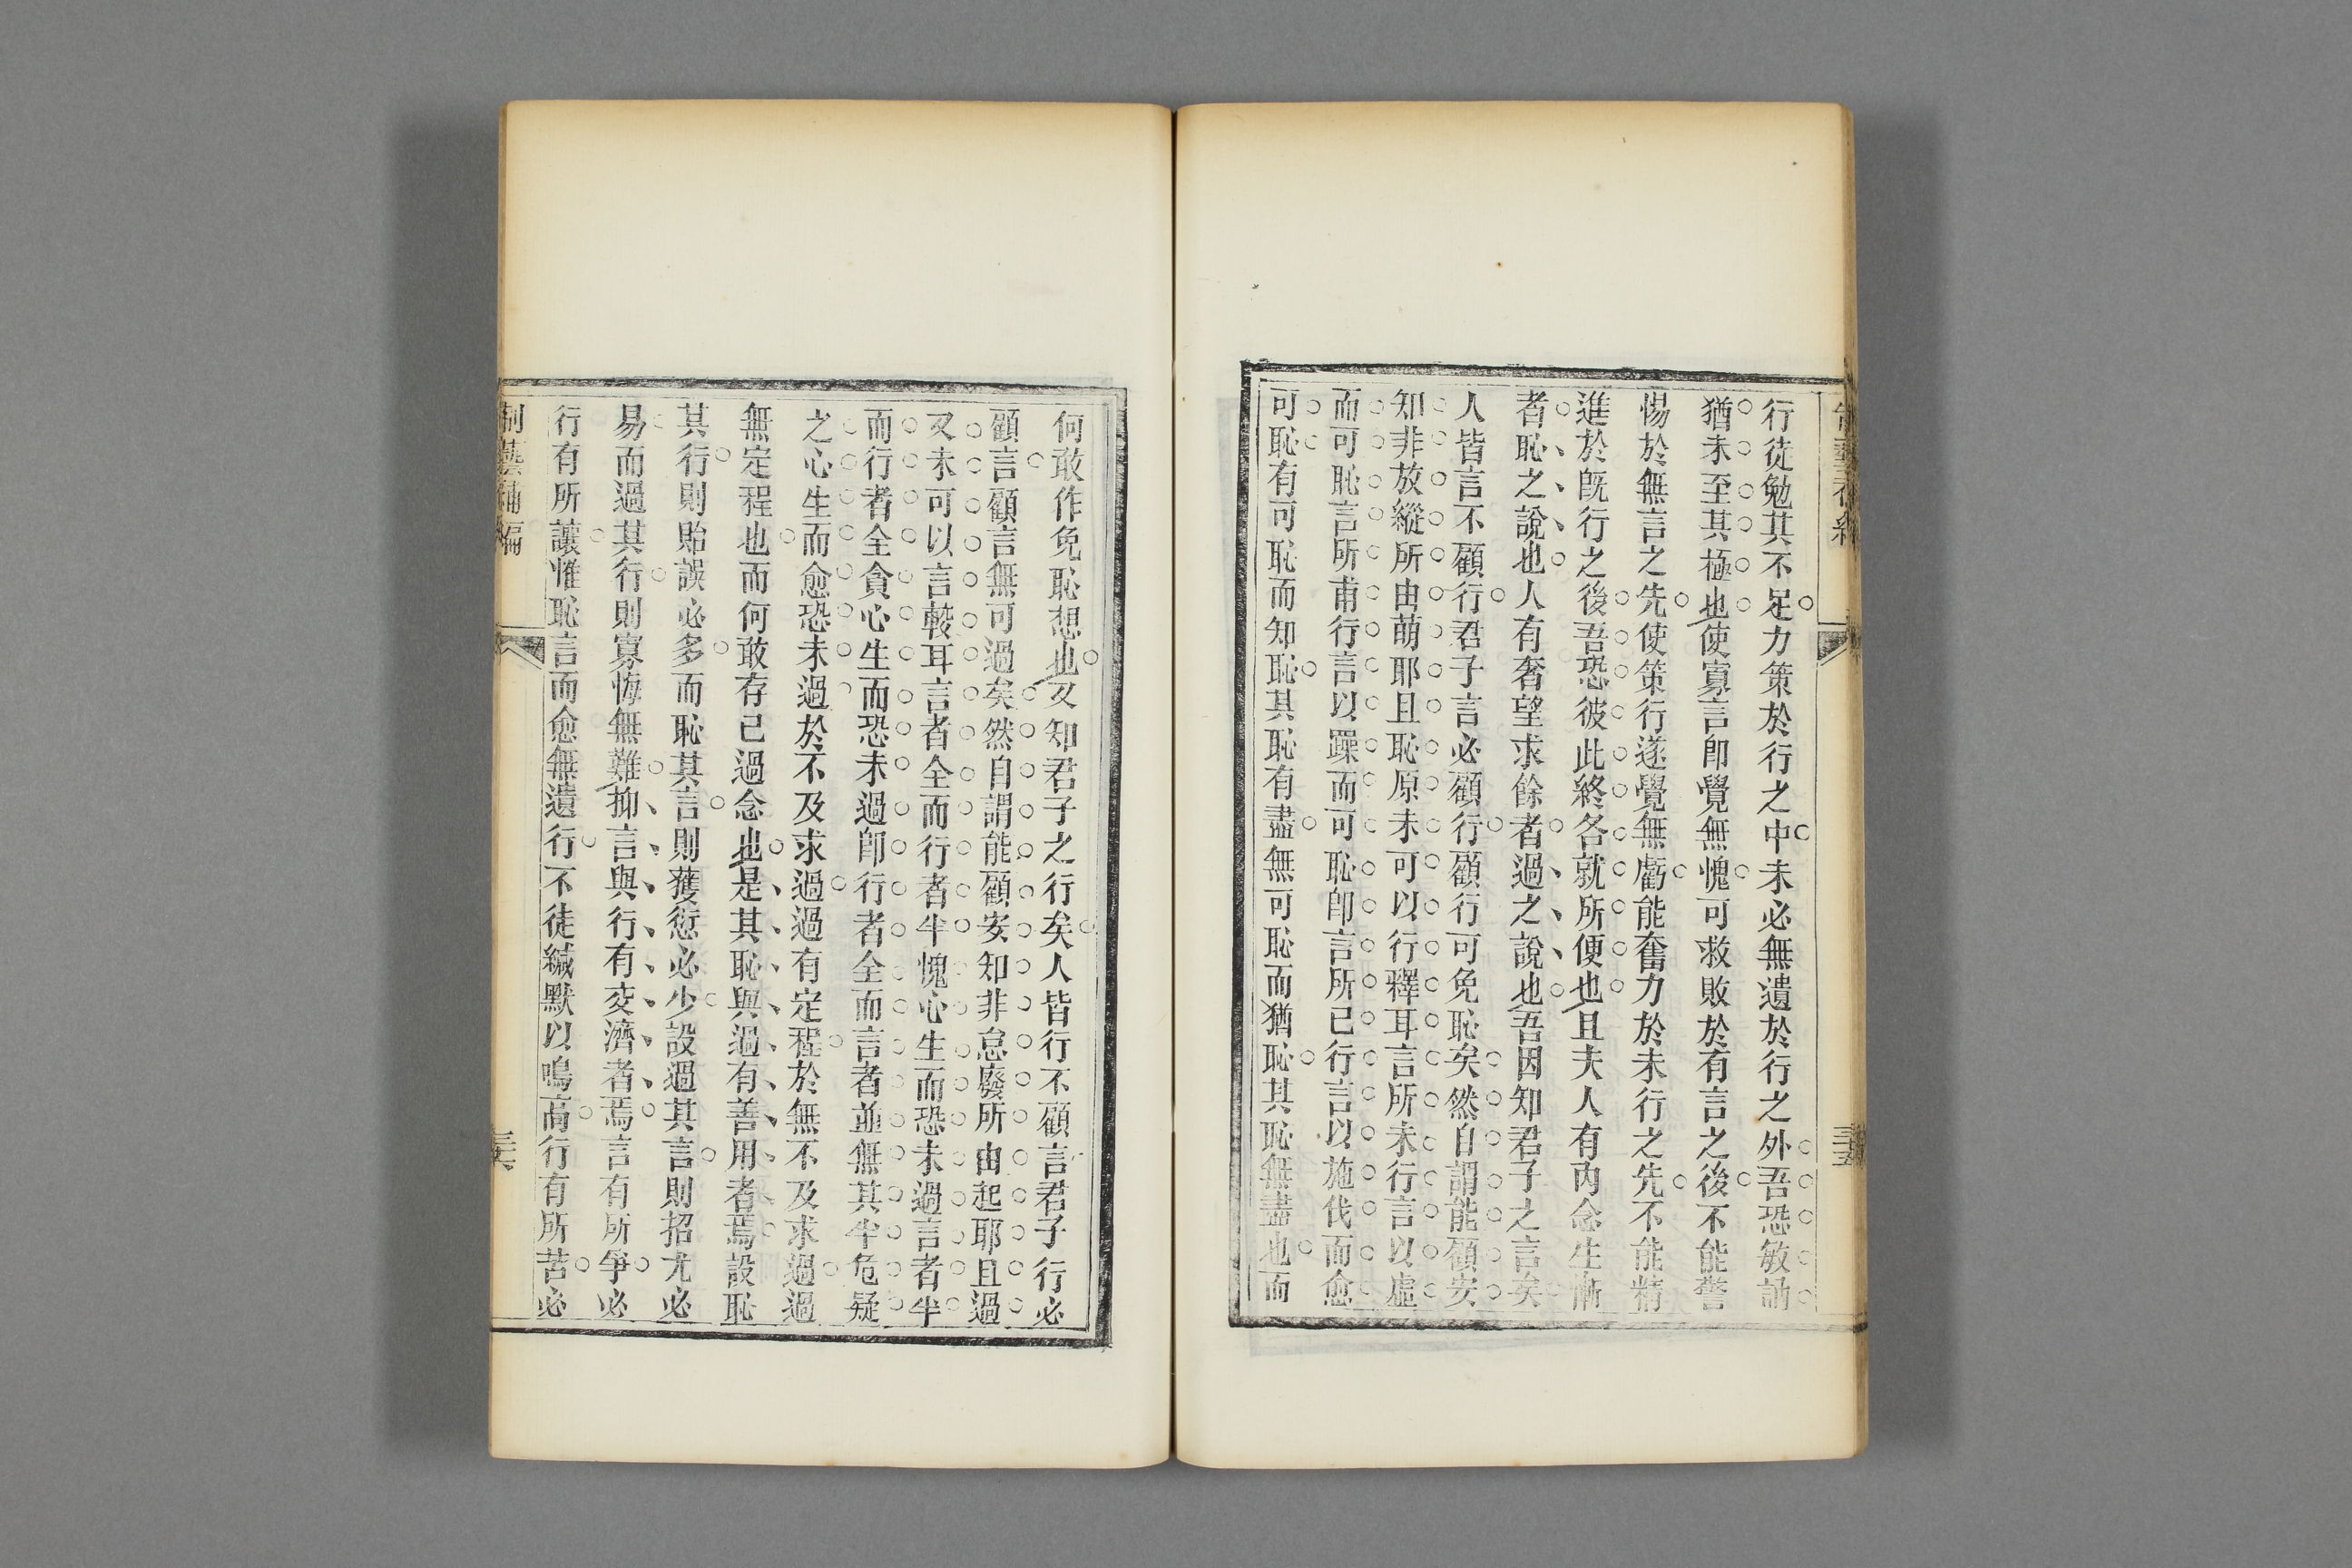 行徒勉其不足力策於行之中未必無遺於行之外吾恐敏誦
猶未至其極也使寡言卽覺無愧可救敗於有言之後不能警
惕於無言之先使策行遂覺無虧能奮力於未行之先不能精
進於旣行之後吾恐彼此終各就所便也且夫人有內念生慚
者恥之說也人有奢望求餘者過之說也吾因知君子之言矣
人皆言不顧行君子言必顧行顧行可免恥矣然自謂能顧安
知非放縱所由萌耶且恥原未可以行釋耳言所未行言以虛
而可恥言所甫行言以躁而可恥卽言所已行言以施伐而愈
可恥有可恥而知恥其恥有盡無可恥而猶恥其恥無盡也而
何敢作免恥想也又知君子之行矣人皆行不顧言君子行必
顧言顧言無可過矣然自謂能顧安知非怠廢所由起耶且過
又未可以言較耳言者全而行者半愧心生而恐未過言者半
而行者全貪心生而恐未過卽行者全而言者並無其半危疑
之心生而愈恐未過於不及求過過有定程於無不及求過過
無定程也而何敢存已過念也是其恥與過有善用者焉設恥
其行則貽誤必多而恥其言則獲愆必少設過其言則招尤必
易而過其行則寡悔無難抑言與行有交濟者焉言有所爭必
行有所讓惟恥言而愈無遺行不徒緘默以鳴高行有所苦必
制藝補編
三六